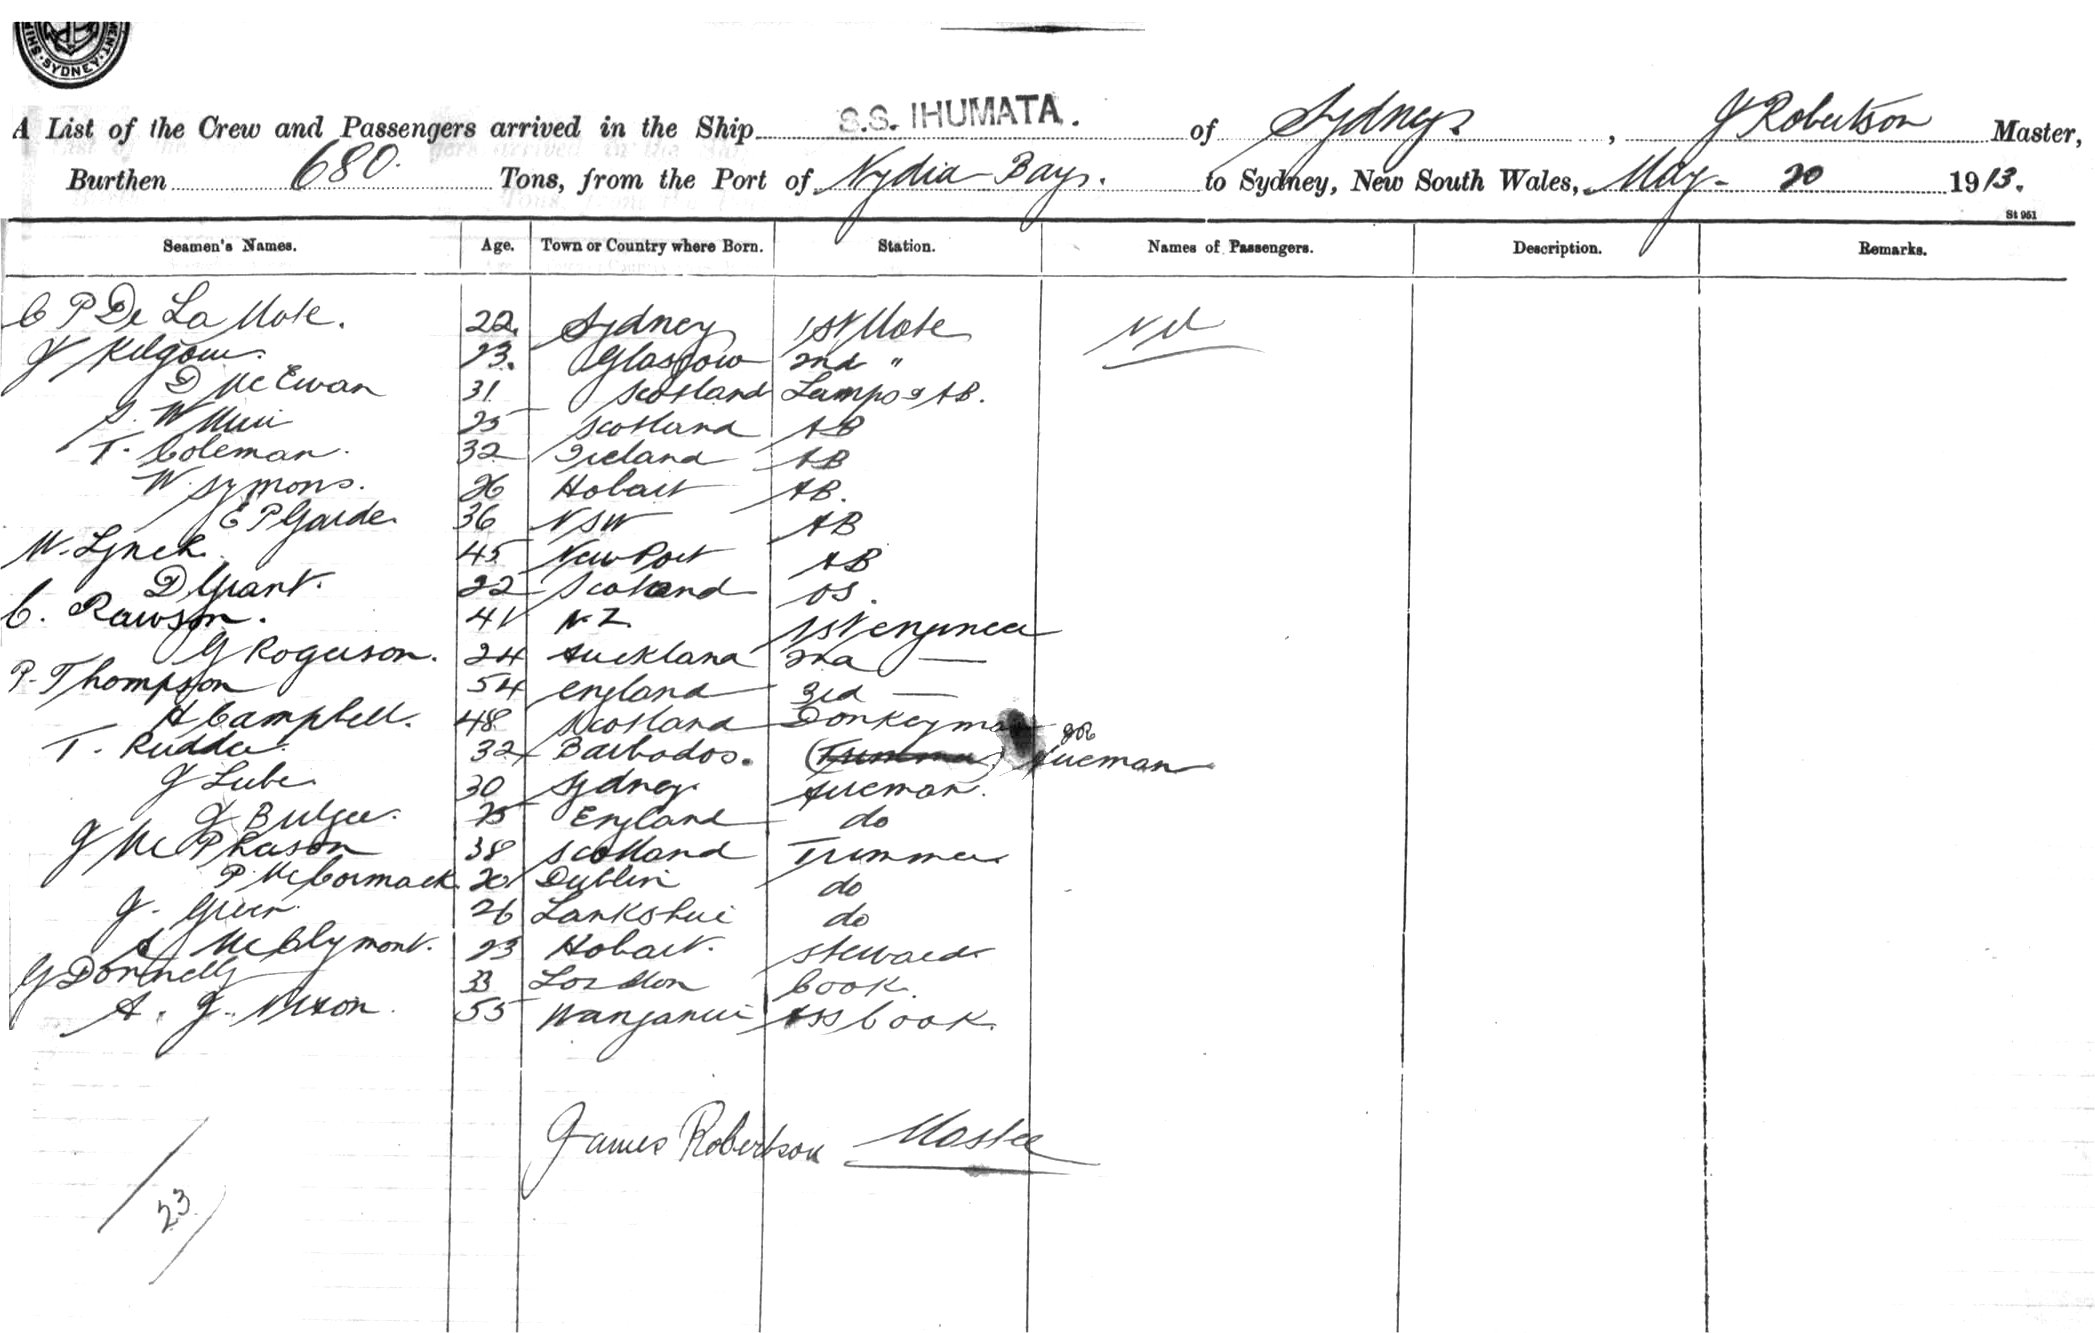 SYDNEY
A List of the Crew and Passengers arrived in the Ship S.S. IHUMATA. of Sydney. , J Robertson Master,
Burthen 680. Tons, from the Port of Nydia Bay. to Sydney, New South Wales, May 20 1913.
St 951
Seamen's Names. Age. Town or Country where Born. Station. Names of Passengers. Description. Remarks.
C P De La Mote. 22. Sydney 1st Mate Nil
J Kilgour. 23. Glasgow 2nd "
D McEwan 31 Scotland Lamps & AB.
W Muir 25 Scotland AB
T. Coleman. 32 Ireland AB
W Symons. 26 Hobart AB.
E P Garde 36 NSW AB
M. Lynch 45 NewPort AB
D Grant. 22 Scotland OS.
C. Rawson. 41 N.Z. 1st engineer
G Rogerson. 24 Auckland 2nd —
P. Thompson 54 england 3rd —
A Campbell. 48 Scotland Donkeyman
T. Rudder. 32 Barbados. (Trimmer) fireman
J Lube 30 Sydney. fireman.
J Bulger. 25 England do
J McPherson 38 Scotland Trimmer
P. McCormack 20 Dublin do
J. Green 26 Lankshire do
A McClymont. 23 Hobart. steward
G Donnelly 33 London Cook.
A. J. Nixon. 55 Wanganui Ass Cook.
James Robertson Master
23